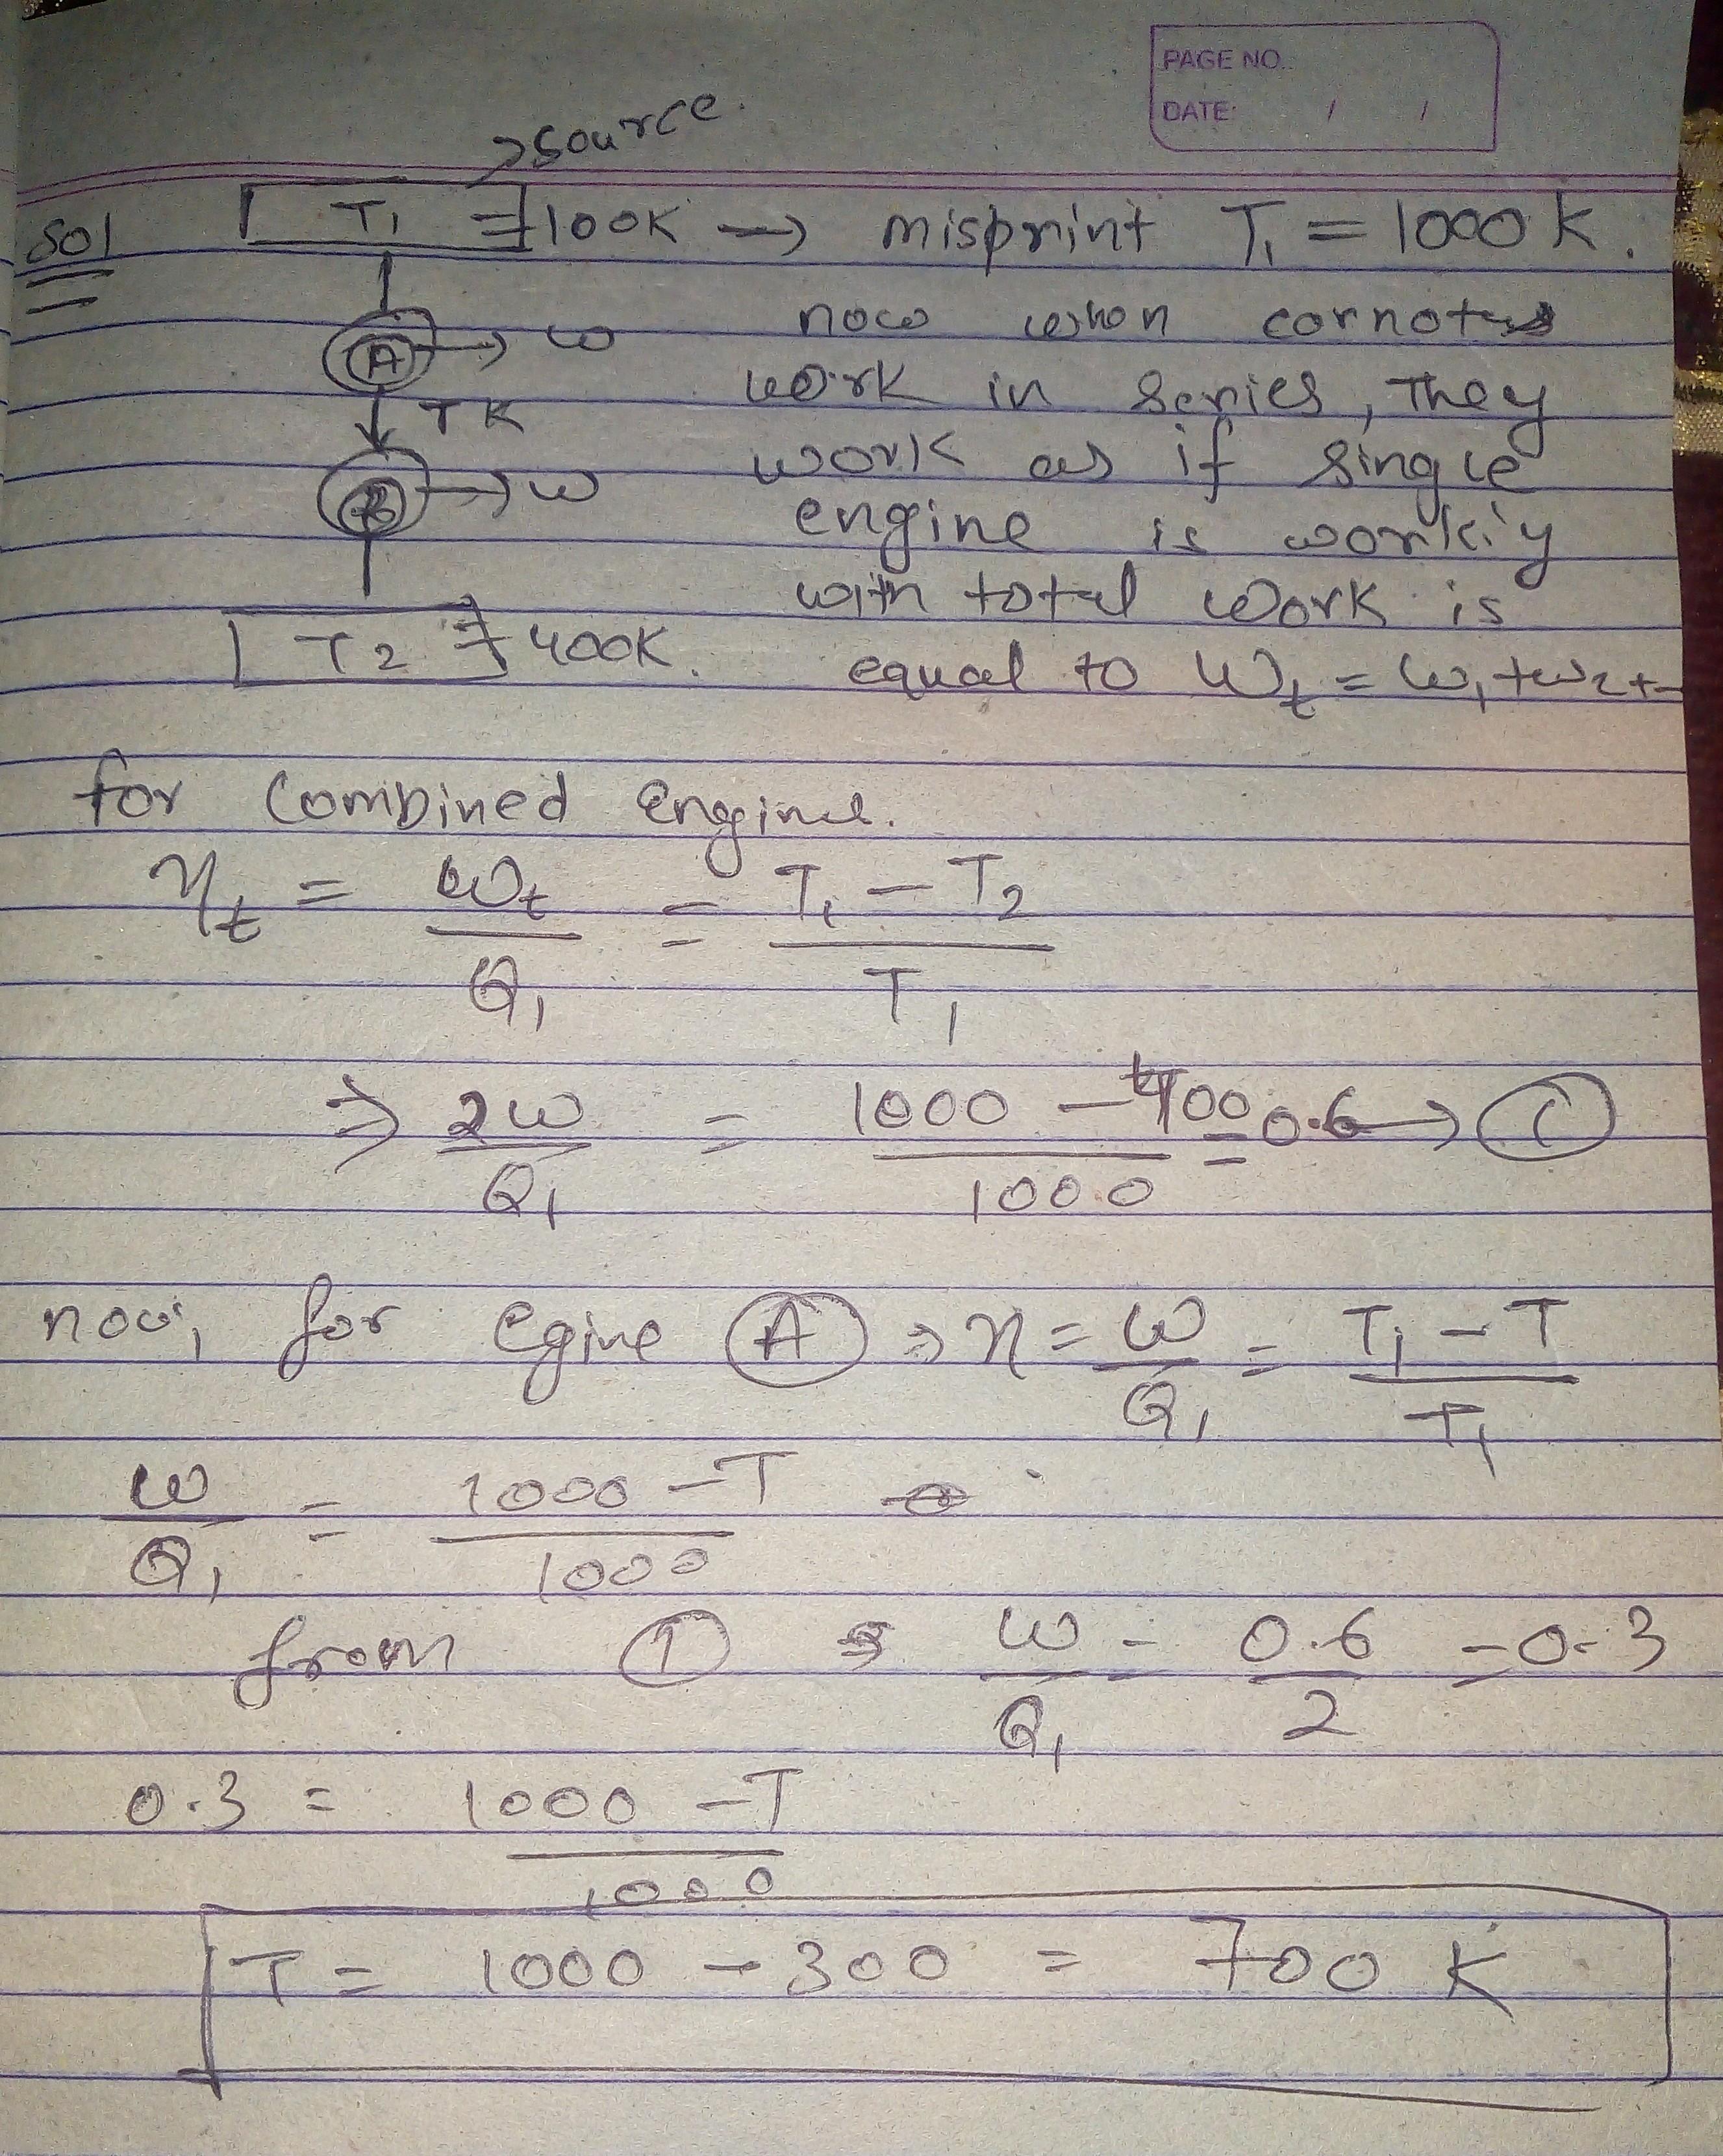 PAGE NO.
DATE: / /
→ source.
Sol T1 = 100K → misprint T1 = 1000 K.
A → w
now when cornot
T K
work in series, They
B → w
work as if single
engine is workiy
with total work is
T2 = 400K.
equal to Wt = w1 + w2 + -
for Combined Engine.
ηt = Wt / Q1 = T1 - T2 / T1
⇒ 2w / Q1 = 1000 - 400 / 1000 = 0.6 → 1
now, for Egine A ⇒ η = W / Q1 = T1 - T / T1
W / Q1 = 1000 - T / 1000
from 1 ⇒ W / Q1 = 0.6 / 2 = 0.3
0.3 = 1000 - T / 1000
T = 1000 - 300 = 700 K